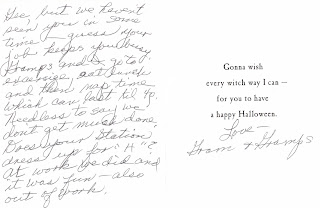 Gee, but we haven't
seen you in some
time. I guess your
job keeps you busy.
Gramps and I go to
excersise, eat lunch
and then nap time
which can last til 4p.
Needless to say we
dont get much done.
Does your Station
dress up for "H"?
At work we did and
it was fun - also
out of work.
Gonna wish
every witch way I can —
for you to have
a happy Halloween.
Love -
Gram & Gramps